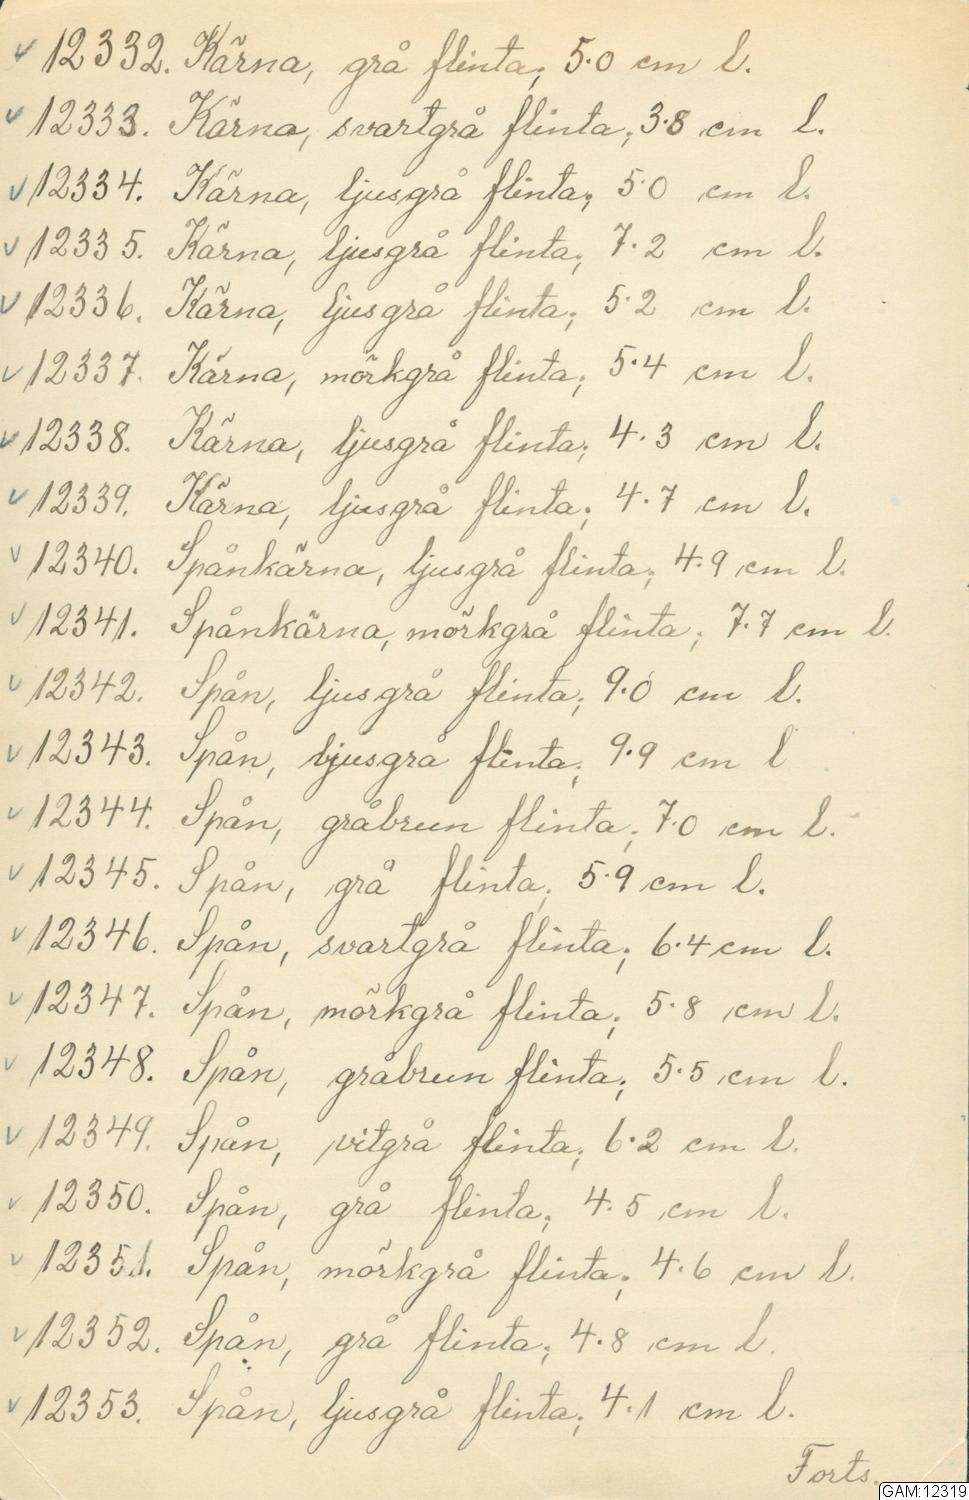 ✓ 12332. Kärna, grå flinta; 5.0 cm l.
✓ 12333. Kärna, svartgrå flinta; 3.8 cm l.
✓ 12334. Kärna, ljusgrå flinta; 5.0 cm l.
✓ 12335. Kärna, ljusgrå flinta; 7.2 cm l.
✓ 12336. Kärna, ljusgrå flinta; 5.2 cm l.
✓ 12337. Kärna, mörkgrå flinta; 5.4 cm l.
✓ 12338. Kärna, ljusgrå flinta; 4.3 cm l.
✓ 12339. Kärna, ljusgrå flinta; 4.7 cm l.
✓ 12340. Spånkärna, ljusgrå flinta; 4.9 cm l.
✓ 12341. Spånkärna, mörkgrå flinta; 7.7 cm l.
✓ 12342. Spån, ljusgrå flinta; 9.0 cm l.
✓ 12343. Spån, ljusgrå flinta; 9.9 cm l
✓ 12344. Spån, gråbrun flinta; 7.0 cm l.
✓ 12345. Spån, grå flinta; 5.9 cm l.
✓ 12346. Spån, svartgrå flinta; 6.4 cm l.
✓ 12347. Spån, mörkgrå flinta; 5.8 cm l.
✓ 12348. Spån, gråbrun flinta; 5.5 cm l.
✓ 12349. Spån, vitgrå flinta; 6.2 cm l.
✓ 12350. Spån, grå flinta; 4.5 cm l.
✓ 12351. Spån, mörkgrå flinta; 4.6 cm l.
✓ 12352. Spån, grå flinta; 4.8 cm l.
✓ 12353. Spån, ljusgrå flinta; 4.1 cm l.
Forts.
GAM:12319